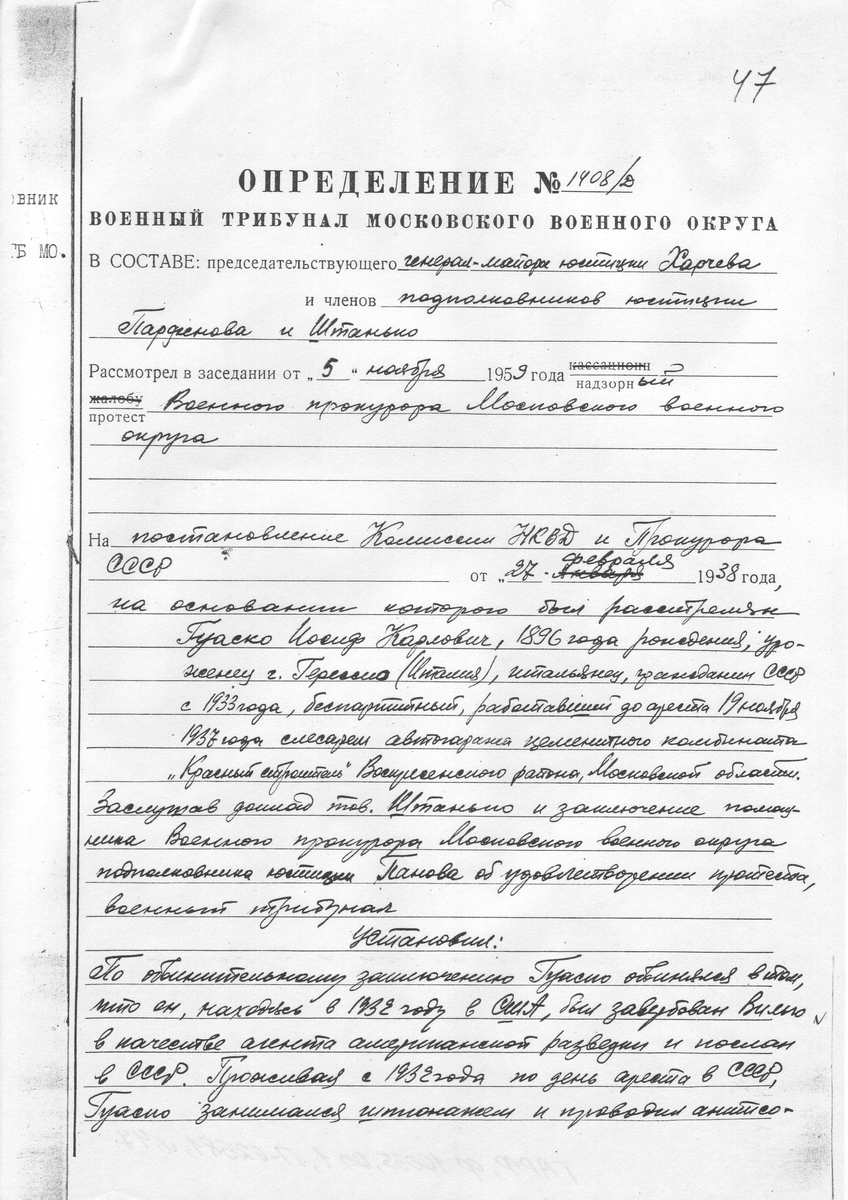 47
ОПРЕДЕЛЕНИЕ № 1408/D
ВОЕННЫЙ ТРИБУНАЛ МОСКОВСКОГО ВОЕННОГО ОКРУГА
ОВНИК
ГБ МО.
В СОСТАВЕ: председательствующего генерал-майора юстиции Харчева
и членов подполковников юстиции
Парфенова и Штанько
Рассмотрел в заседании от „5“ ноября 1959 года кассационн
надзорный
жалобу
протест Военного прокурора Московского военного
округа
На постановление Комиссии НКВД и Прокурора
февраля
СССР от „27 - января 1938 года,
на основании которого был расстрелян
Гуаско Иосиф Карлович, 1896 года рождения, уро-
женец г. Герессио (Италия), итальянец, гражданин СССР
с 1933 года, беспартийный, работавший до ареста 19 ноября
1937 года слесарем автогаража цементного комбината
„Красный строитель" Воскресенского района, Московской области.
Заслушав доклад тов. Штанько и заключение помощ-
ника Военного прокурора Московского военного округа
подполковника юстиции Панова об удовлетворении протеста,
военный трибунал
Установил:
По обвинительному заключению Гуаско обвинялся в том,
что он, находясь в 1932 году в США, был завербован Вильо
в качестве агента американской разведки и послан
в СССР. Проживая с 1932 года по день ареста в СССР,
Гуаско занимался шпионажем и проводил антисо-